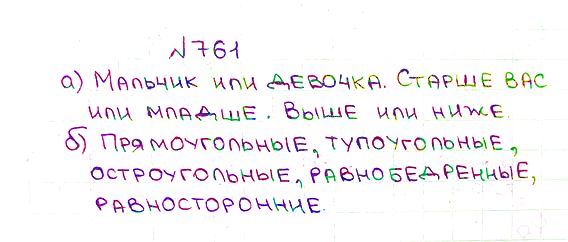 №761
а) Мальчик или девочка. Старше вас
или младше. Выше или ниже.
б) Прямоугольные, тупоугольные,
остроугольные, равнобедренные,
равносторонние.